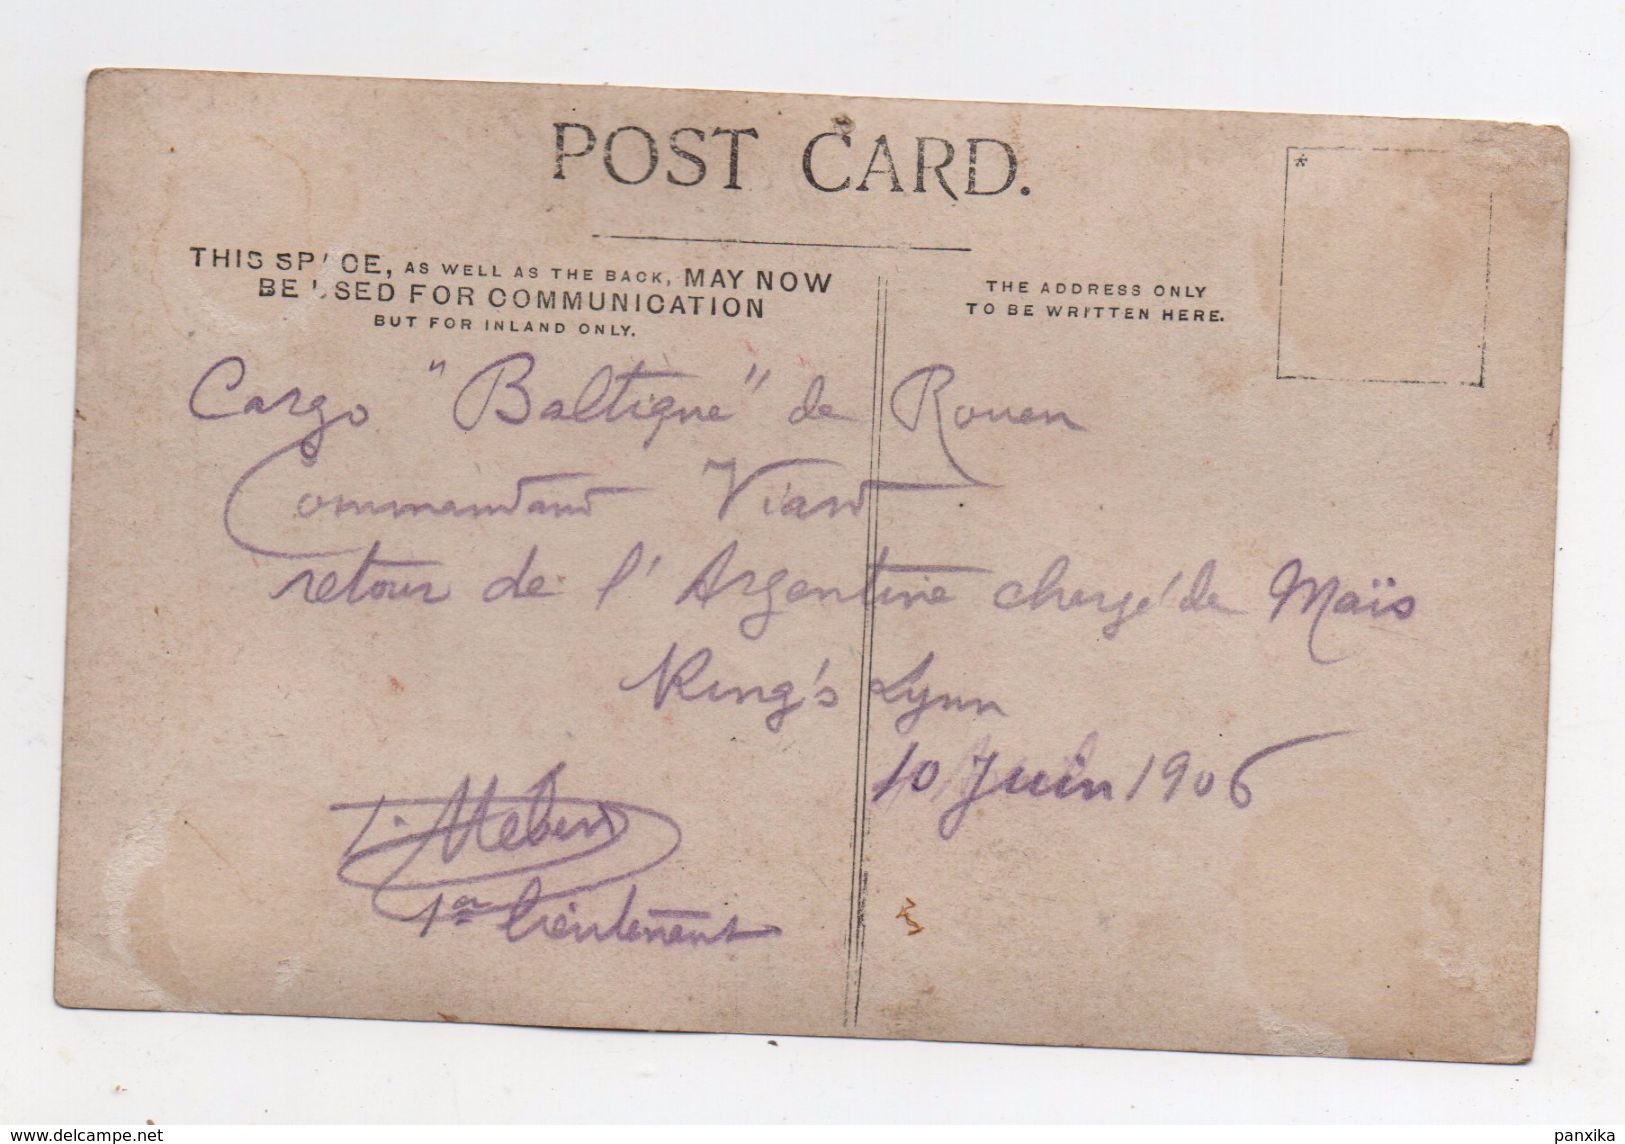 POST CARD.
THIS SPACE, AS WELL AS THE BACK, MAY NOW
BE USED FOR COMMUNICATION
BUT FOR INLAND ONLY.
THE ADDRESS ONLY
TO BE WRITTEN HERE.
*
Cargo "Baltique" de Rouen
Commandant Viard
retour de l'Argentine chargé de Maïs
King's Lynn
10 Juin 1906
1er lieutenant
delcampe.net
panxika